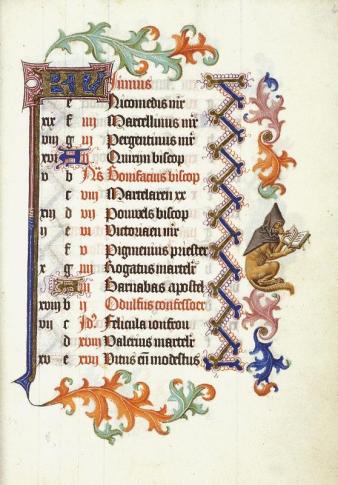 KL Iunius
e Nicomedis mr̄
xix f iiij Marcellinus mr̄
viij g iij Pergentinus mr̄
xvi A ij Quiryn biscop
v b Ns Bonifacius biscop
c viij Martelaren xx
xiij d vij Pouwels biscop
ij e vi Victoriaen mr̄
f v Pigmenius priester
x g iiij Rogatus martelr̄
A iij Barnabas apostel
xviij b ij Odulfus confessoer
vij c Id9 Felicula ioncfrou
d xviij Valerius martelr̄
xv e xvij Vitus en̄ modestus